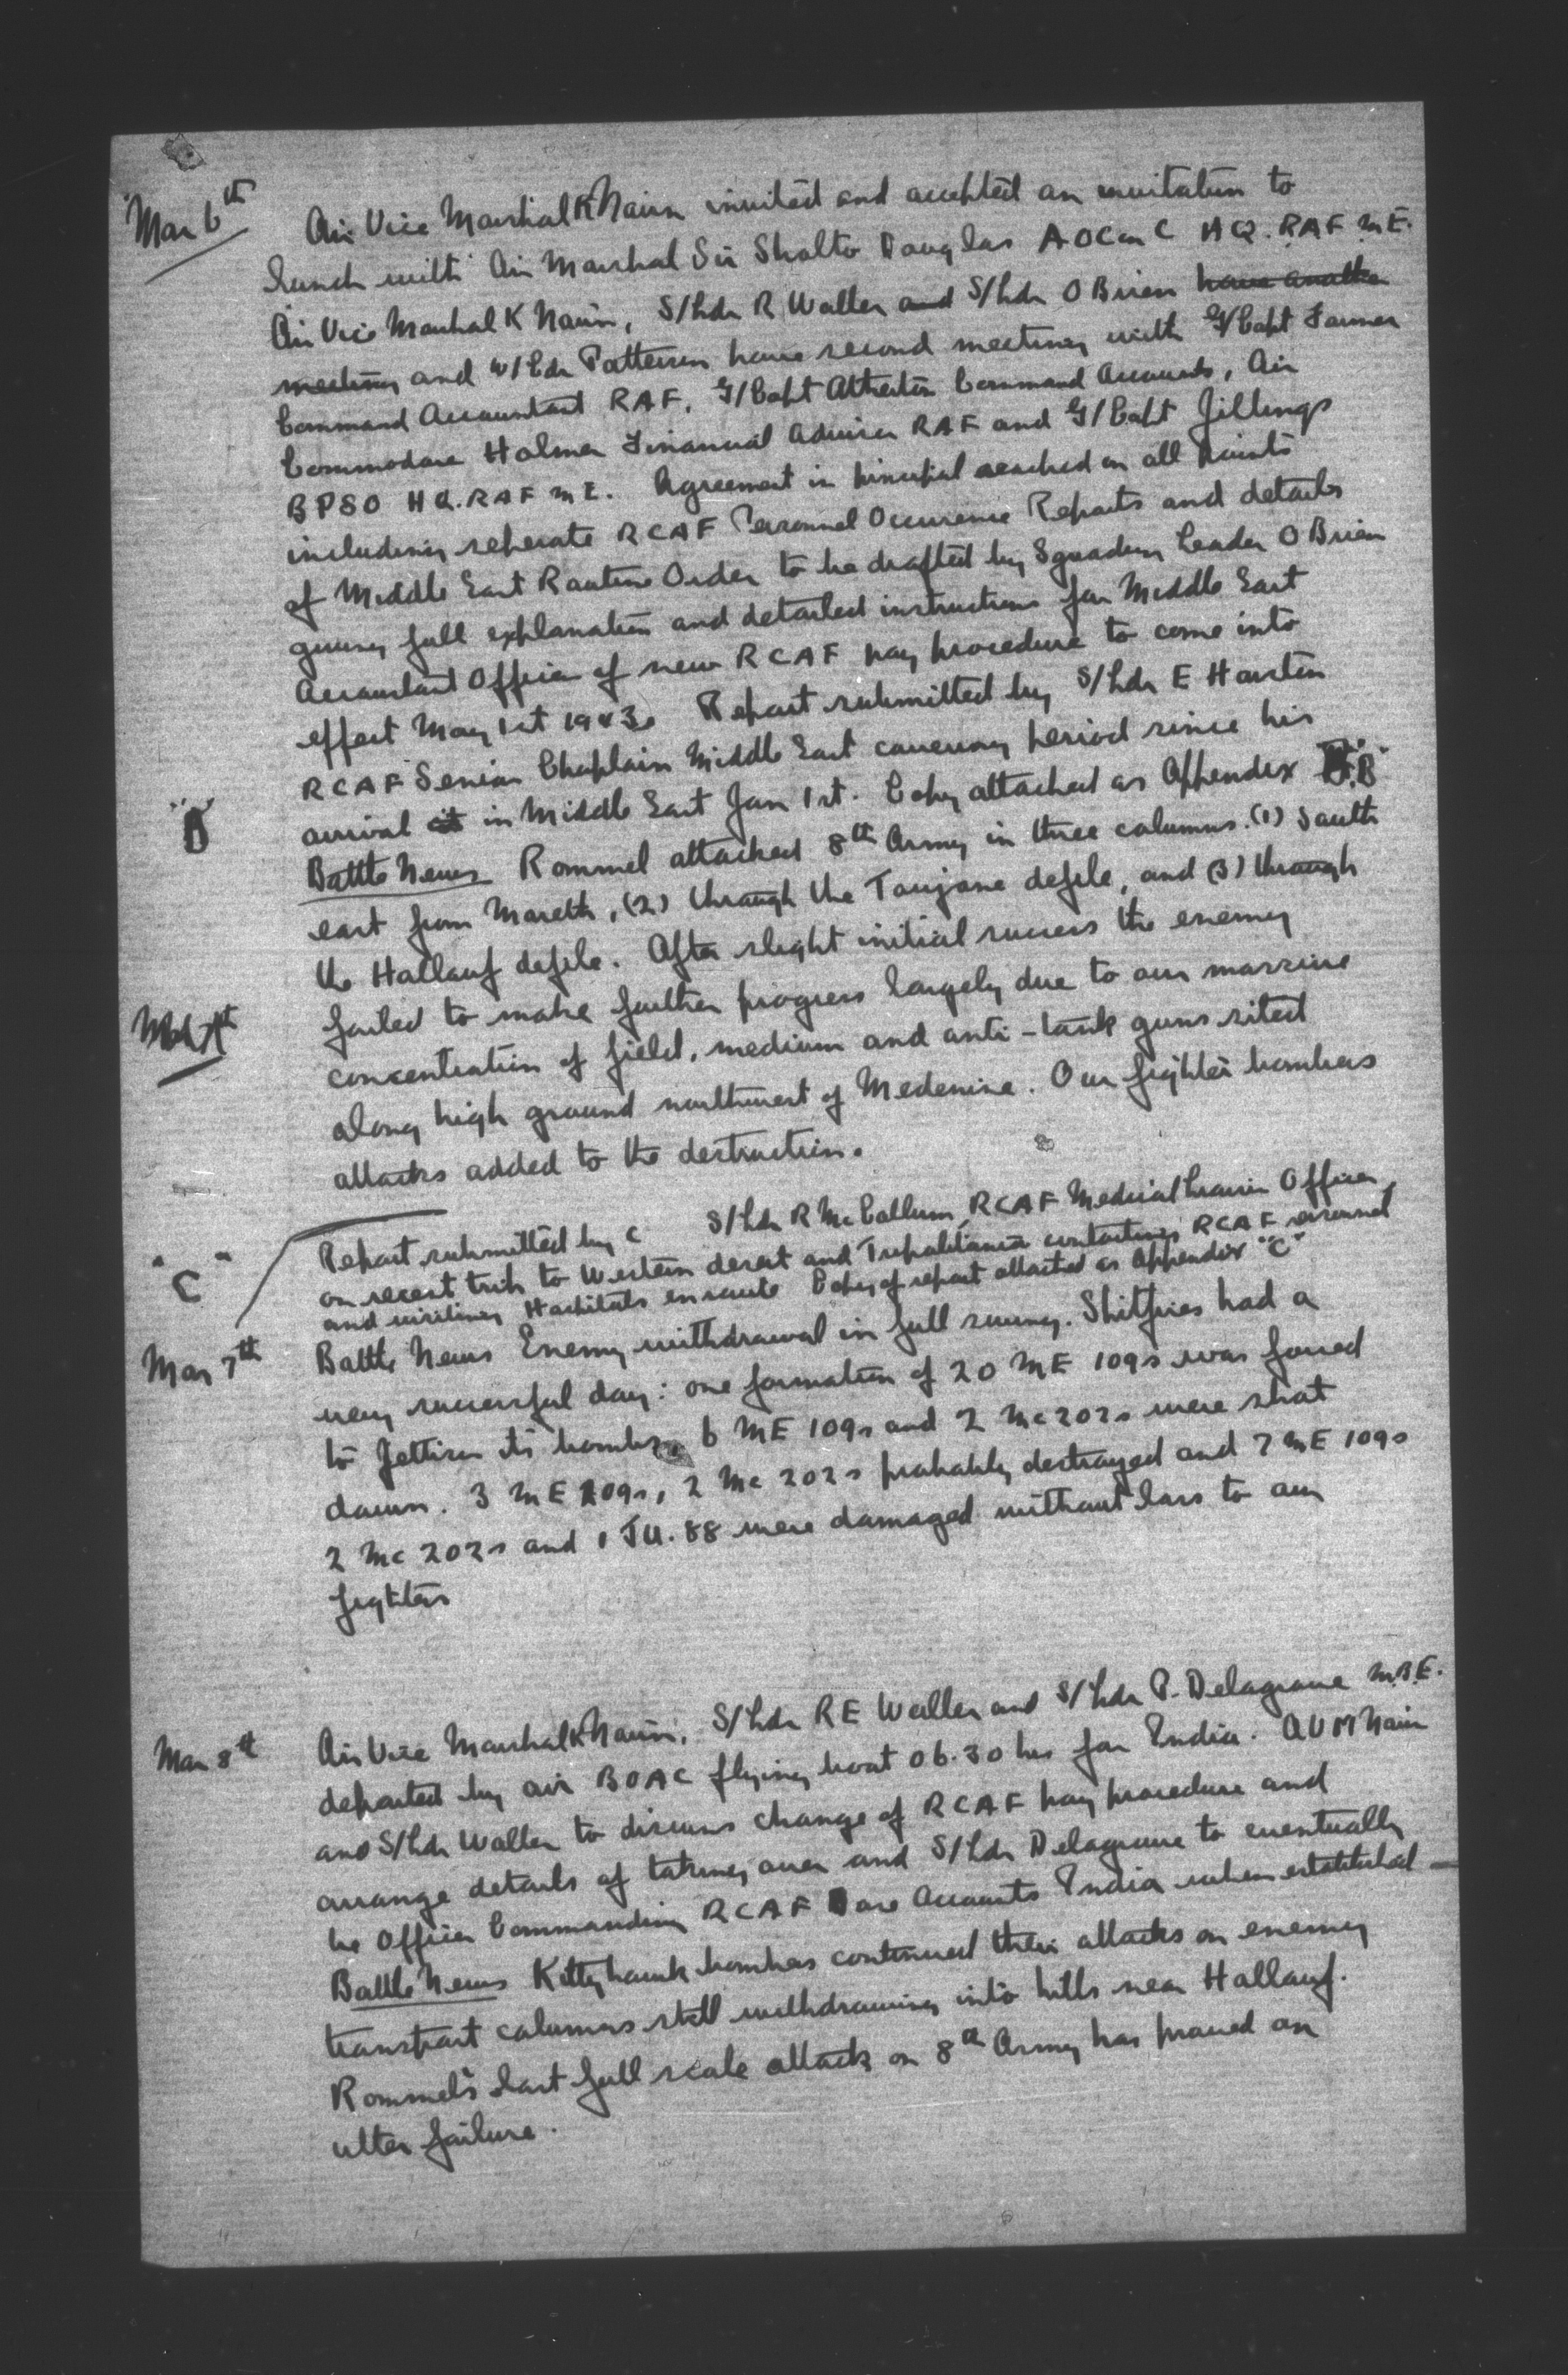 Mar 6th
Air Vice Marshal K Nairn invited and accepted an invitation to
lunch with Air Marshal Sir Sholto Douglas AOC in C HQ. RAF ME.
Air Vice Marshal K Nairn, S/Ldr R Waller and S/Ldr O Brien have another
meeting and W/Cdr Patterson have second meeting with G/Capt Farmer
Command Accountant RAF, G/Capt Atherton Command Accounts, Air
Commodore Holmer Financial Adviser RAF and G/Capt Jillings
BPSO HQ. RAF ME. Agreement in principal reached on all points
including seperate RCAF Personnel Occurence Reports and details
of Middle East Routine Order to be drafted by Squadron Leader O Brien
giving full explanation and detailed instructions for Middle East
Accountant Officer of new RCAF pay procedure to come into
effect May 1st 1943. Report submitted by S/Ldr E Harston
RCAF Senior Chaplain Middle East covering period since his
arrival at in Middle East Jan 1st. Copy attached as Appendix "B"
"B"
Battle News Rommel attacked 8th Army in three columns. (1) South
east from Mareth, (2) through the Toujane defile, and (3) through
the Hallouf defile. After slight initial success the enemy
failed to make further progress largely due to our massive
concentration of field, medium and anti-tank guns sited
along high ground northwest of Medenine. Our fighter bombers
attacks added to the destruction.
"C"
Report submitted by C S/Ldr R McCallum RCAF Medical Liaison Officer,
on recent trip to Western desert and Tripolitania contacting RCAF aircrew
and visiting Hospitals enroute Copy of report attached as Appendix "C"
Mar 7th
Battle News Enemy withdrawal in full swing. Spitfires had a
very successful day: one formation of 20 ME 109s was forced
to jettison its bombs. 6 ME 109s and 2 Mc 202s were shot
down. 3 ME 109s, 2 Mc 202s probably destroyed and 7 ME 109s
2 Mc 202s and 1 JU. 88 were damaged without loss to our
fighters
Mar 8th
Air Vice Marshal K Nairn, S/Ldr R E Waller and S/Ldr P. Delagrave M.B.E.
departed by air BOAC flying boat 06.30 hrs for India. AVM Nairn
and S/Ldr Waller to discuss change of RCAF pay procedure and
arrange details of taking over and S/Ldr Delagrave to eventually
be Officer Commanding RCAF Accounts India when established —
Battle News Kittyhawk bombers continued their attacks on enemy
transport columns still withdrawing into hills near Hallouf.
Rommel's last full scale attack on 8th Army has proved an
utter failure.